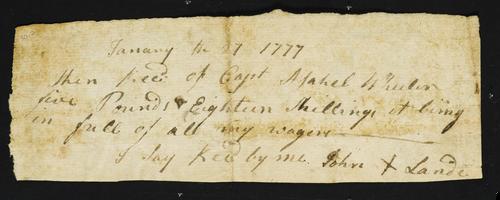 Janary the 27 1777
then Recd of Capt Asahel Wheeler
five Pounds & Eighteen Shillings it being
in full of all my wagers
I Say Recd by me John X Lande